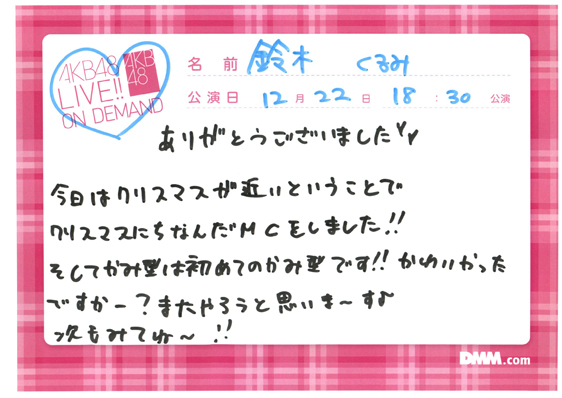 AKB48 LIVE!! ON DEMAND AKB48
名前 鈴木 くるみ
公演日 12月22日 18:30公演
ありがとうございました♡♡
今日はクリスマスが近いということで
クリスマスにちなんだMCをしました!!
そしてかみ型は初めてのかみ型です!! かわいかった
ですかー?またやろうと思いま〜す♪
次もみてね〜!!
DMM.com